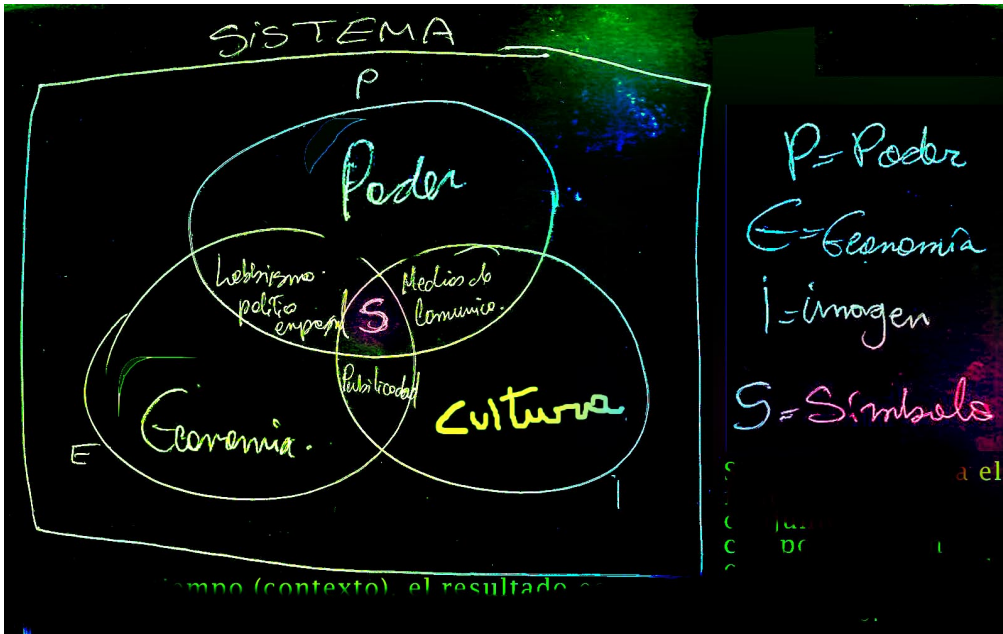 SiSTEMA
P
Poder
Lobbismo
politio
Medios de
Comunica.
S
Publicidad
Economia.
Cultura
E
I
P=Poder
E=Economía
i=imagen
S=Símbolo
a el
empo (contexto), el resultado